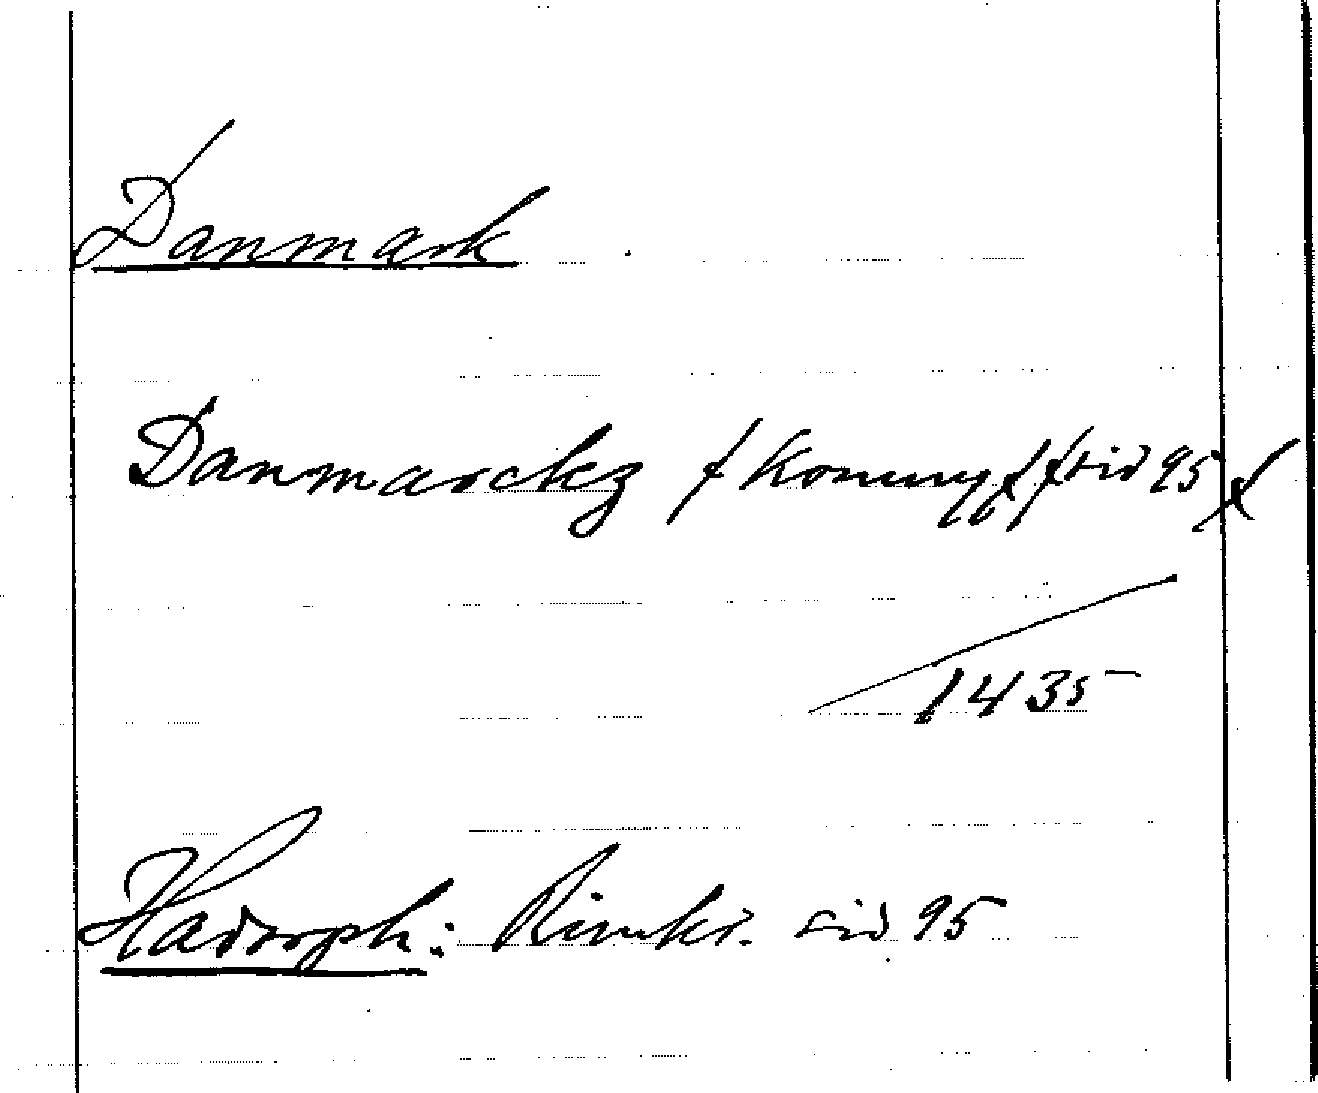 Danmark
Danmarckz / Konung / / sid 95 /
1435
Hadorph: Rimkr. sid 95